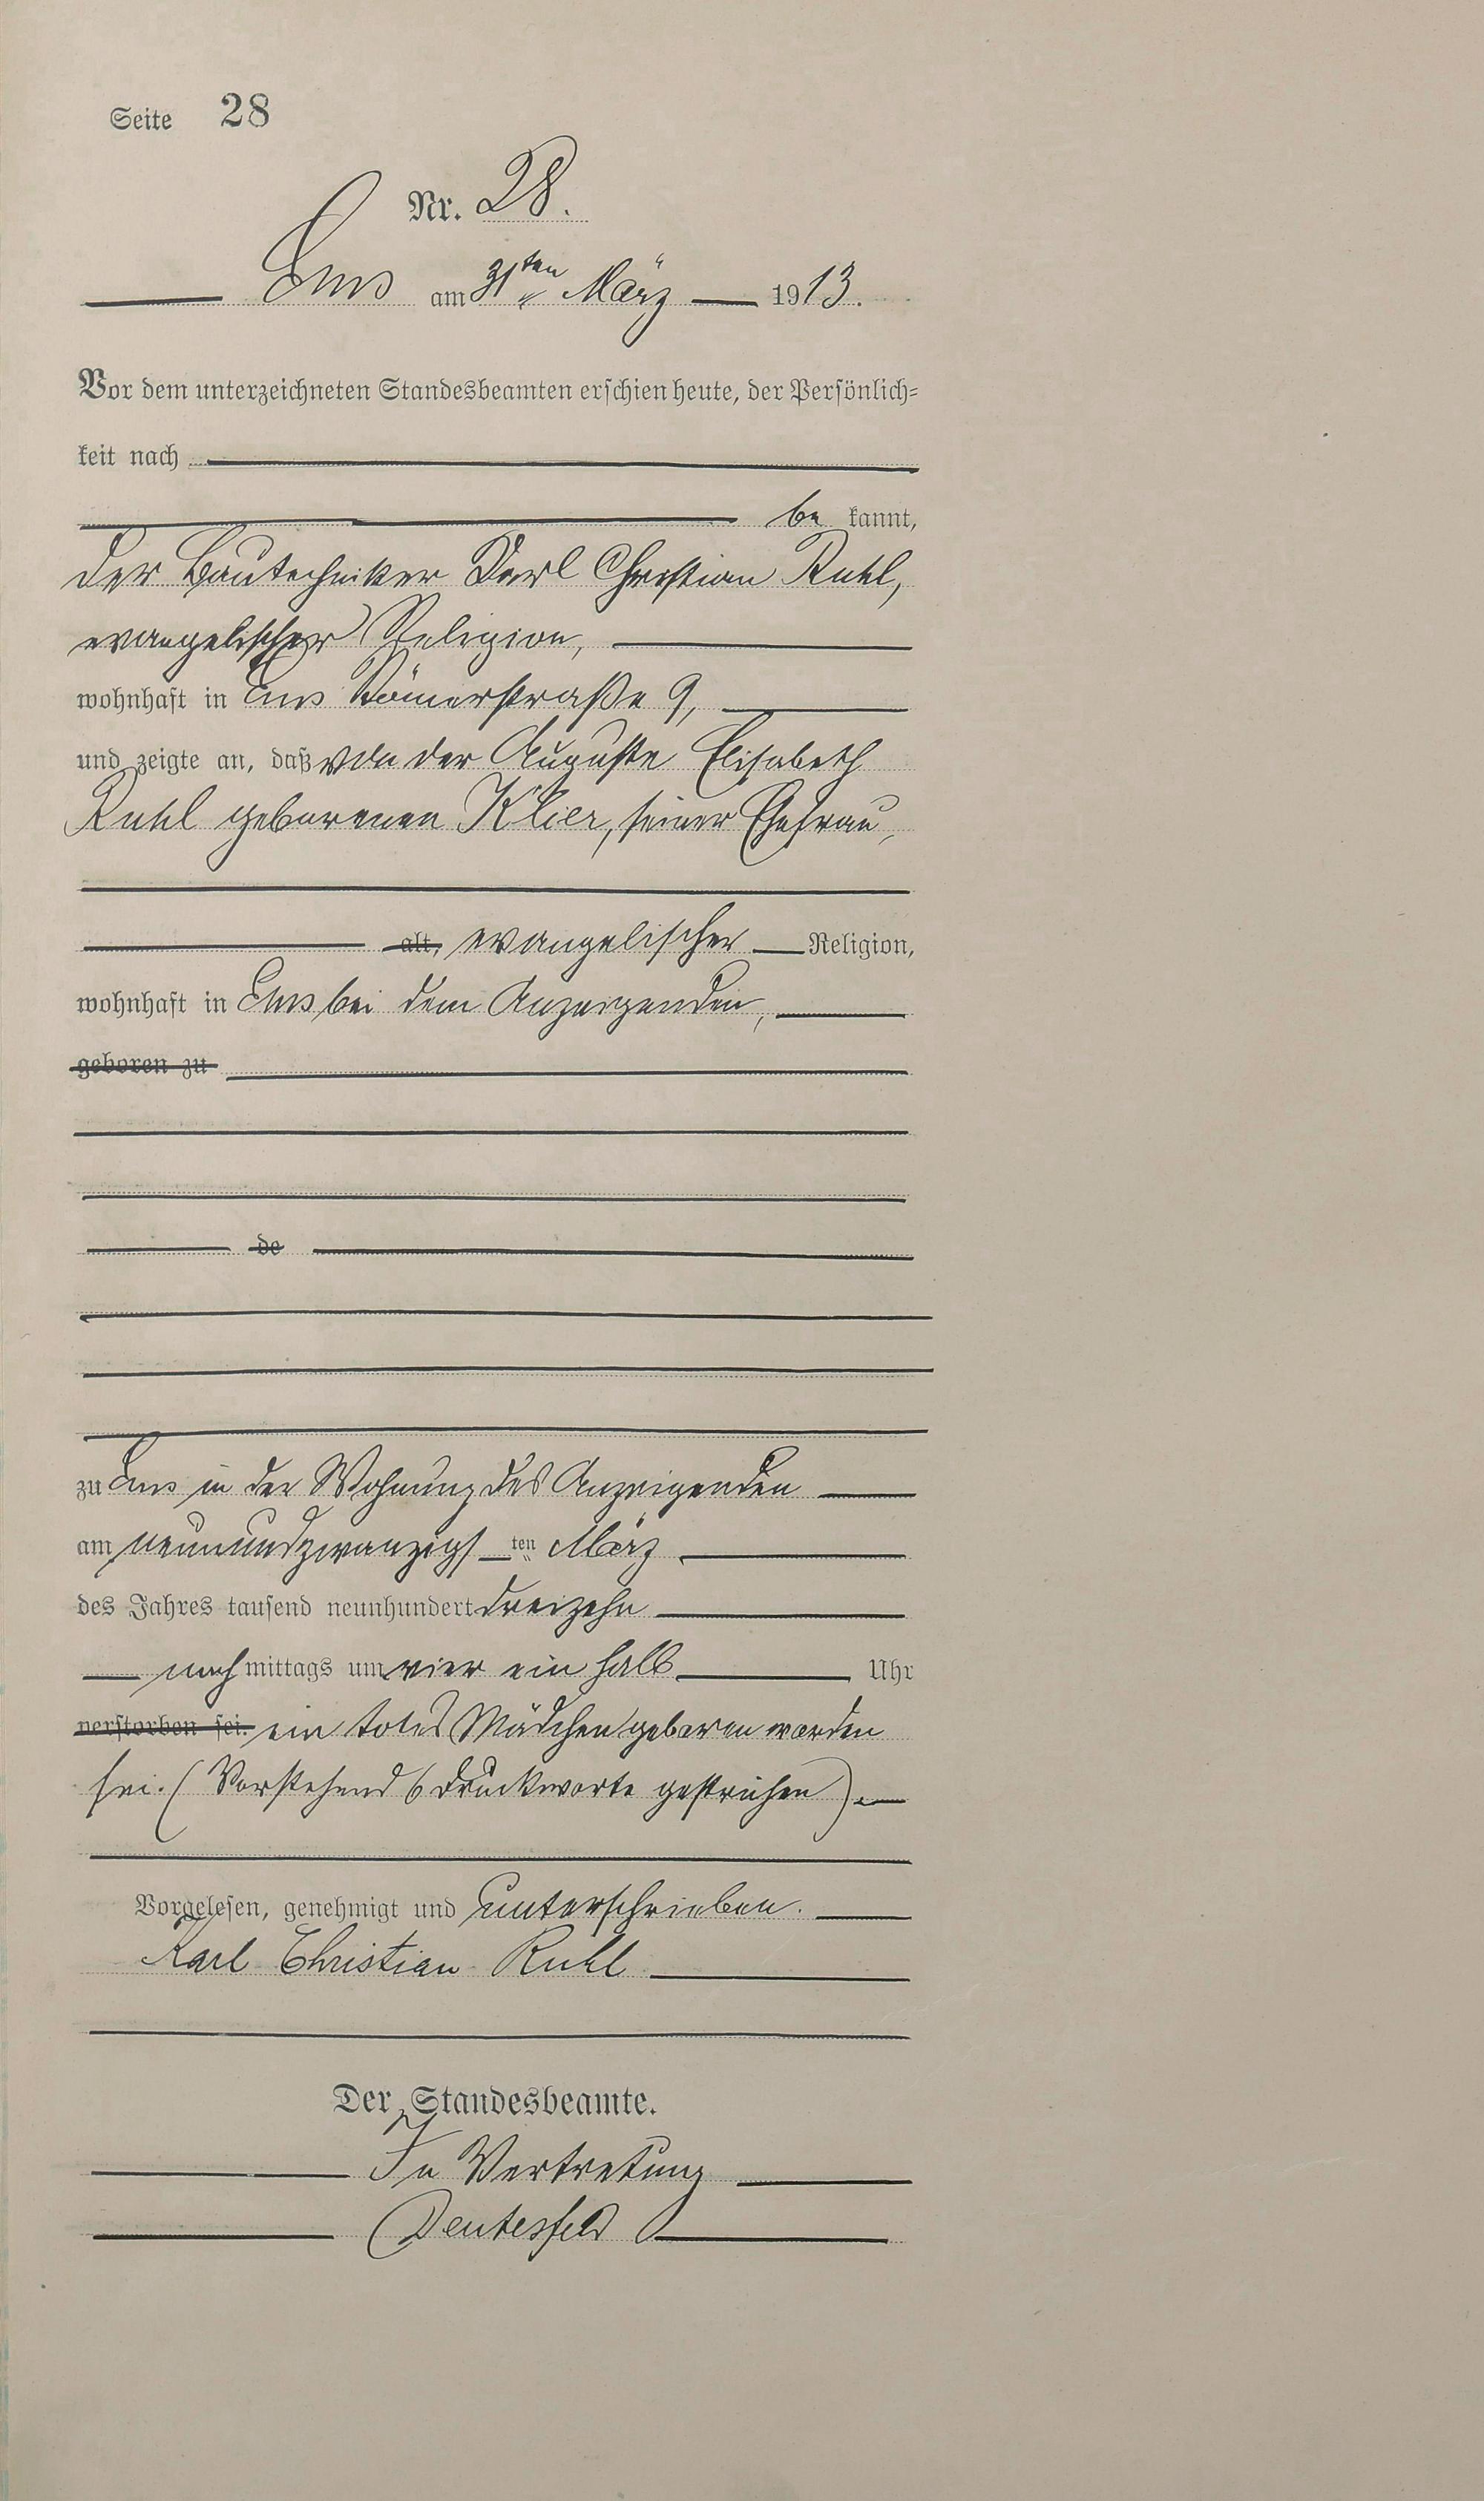 Seite 28
Nr. 28.
Ems am 31ten März 1913.
Vor dem unterzeichneten Standesbeamten erschien heute, der Persönlich=
keit nach
be kannt,
der Bautechniker Karl Christian Ruhl,
evangelischer Religion,
wohnhaft in Ems Römerstraße 9,
und zeigte an, daß von der Auguste Elisabeth
Ruhl geborenen Klier, seiner Ehefrau,
alt, evangelischer Religion,
wohnhaft in Ems bei dem Anzeigenden,
geboren zu
de
zu Ems in der Wohnung des Anzeigenden
am neunundzwanzigsten März
des Jahres tausend neunhundert dreizehn
nachmittags um vier ein halb Uhr
verstorben sei. ein totes Mädchen geboren worden
sei. (Vorstehend 6 Druckworte gestrichen).
Vorgelesen, genehmigt und unterschrieben.
Karl Christian Ruhl
Der Standesbeamte.
In Vertretung